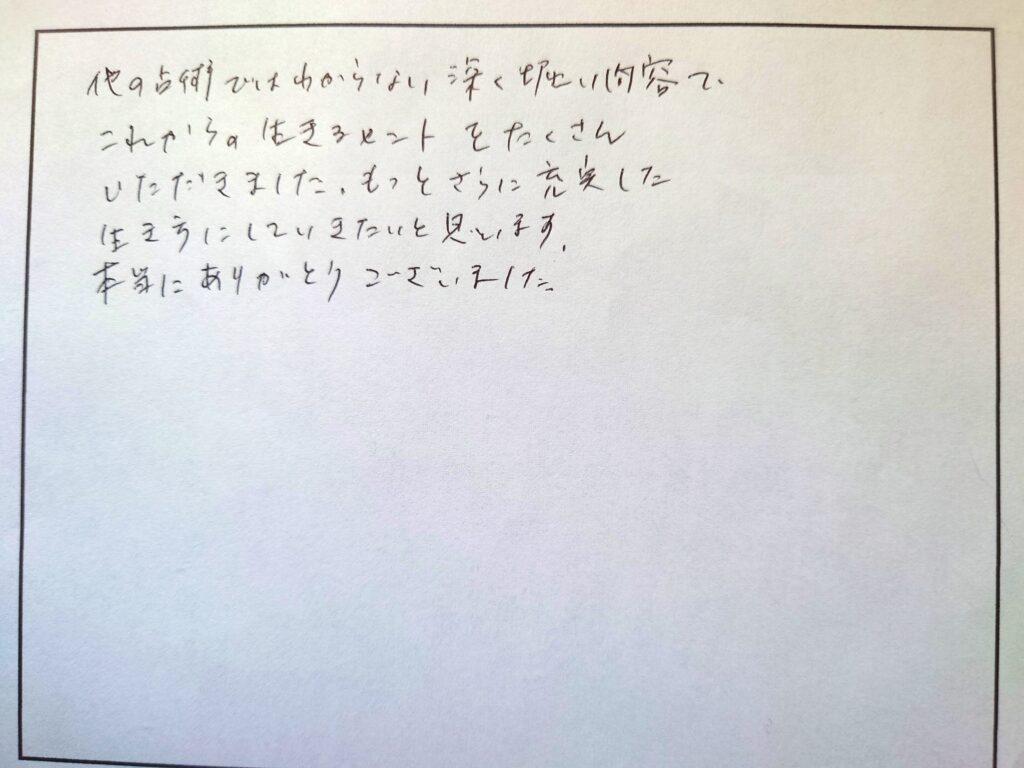 他の占術ではわからない深く堀い内容で
これからの生きるヒントをたくさん
いただきました。もっとさらに充実した
生き方にしていきたいと思います。
本当にありがとうございました。